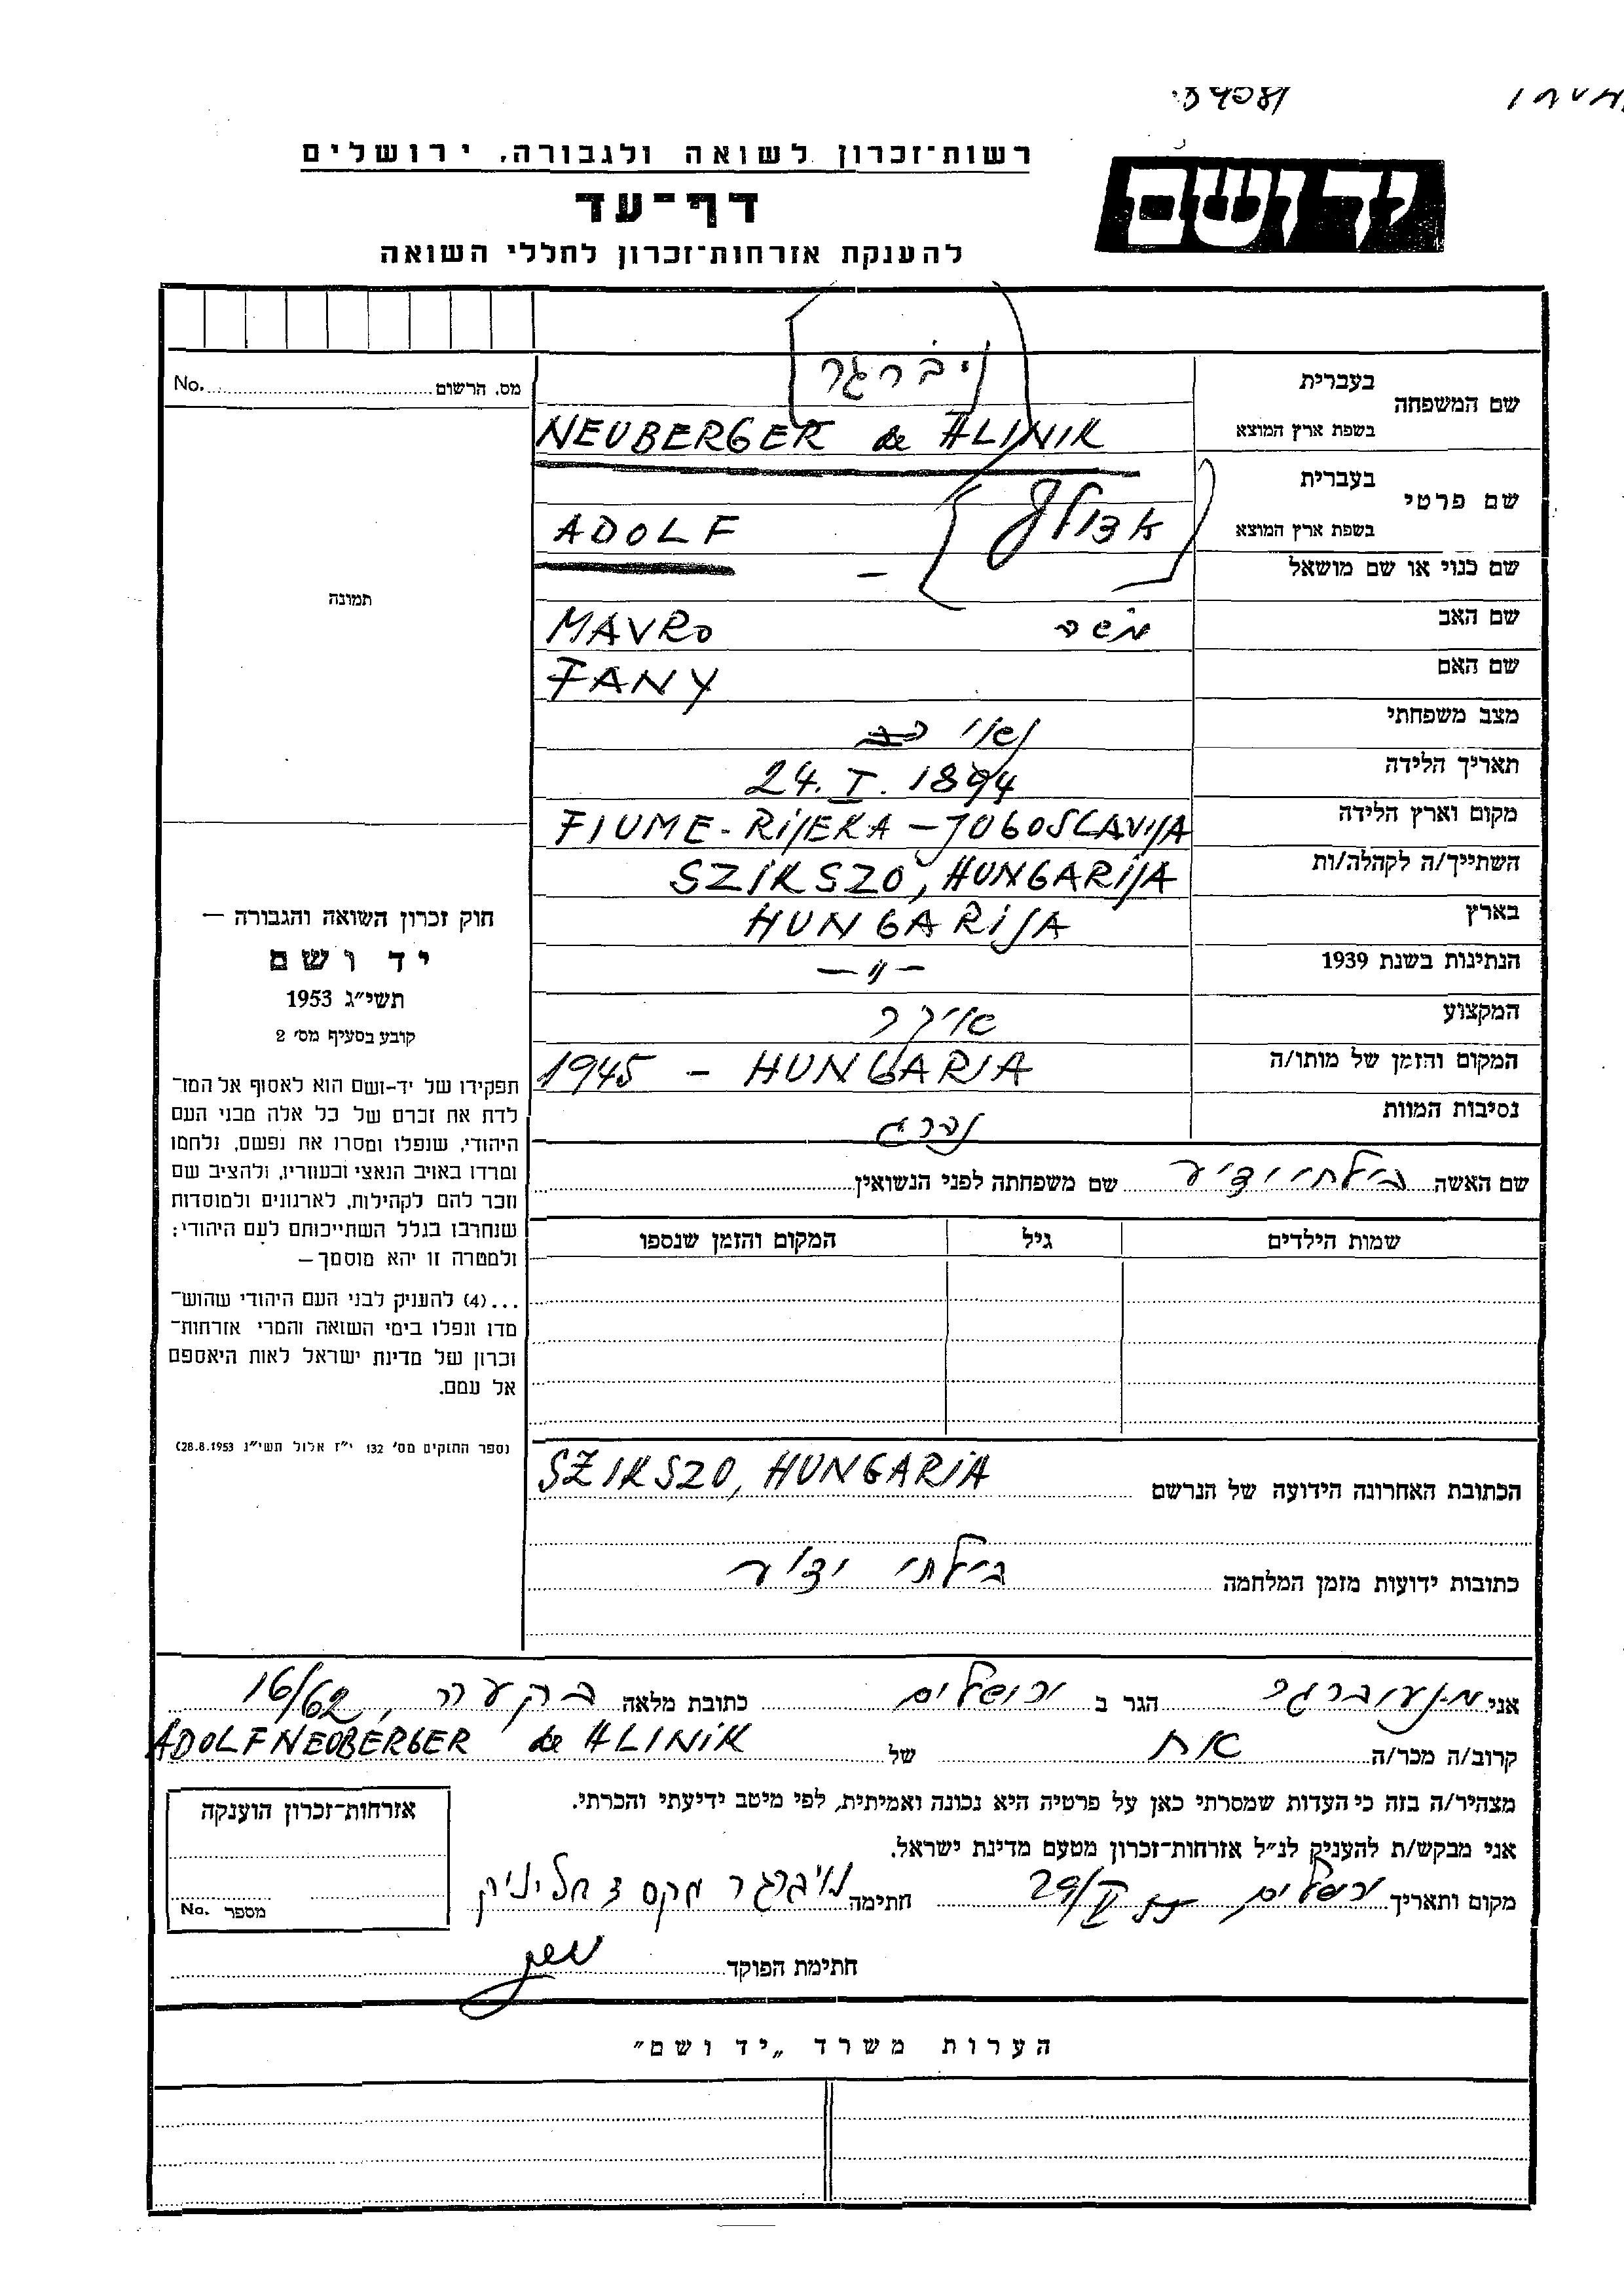 רשות־זכרון לשואה ולגבורה, ירושלים
יד ושם
דף־עד
להענקת אזרחות־זכרון לחללי השואה
מס. הרשום No.
שם המשפחה בעברית ניברגר
בשפת ארץ המוצא NEUBERGER de HLINIK
שם פרטי בעברית אדולף
בשפת ארץ המוצא ADOLF
שם כנוי או שם מושאל –
תמונה
שם האב משה MAVRO
שם האם FANY
מצב משפחתי נשוי
תאריך הלידה 24. I. 1894
מקום וארץ הלידה FIUME - RIJEKA - JUGOSLAVIJA
השתייך/ה לקהלה/ות SZIKSZO, HUNGARIJA
בארץ HUNGARIJA
הנתינות בשנת 1939 – " –
המקצוע
המקום והזמן של מותו/ה 1945 - HUNGARIA
נסיבות המוות נהרג
שם האשה בילתי ידיע שם משפחתה לפני הנשואין
שמות הילדים גיל המקום והזמן שנספו
חוק זכרון השואה והגבורה —
יד ושם
תשי״ג 1953
קובע בסעיף מס׳ 2
תפקידו של יד-ושם הוא לאסוף אל המו־
לדת את זכרם של כל אלה מבני העם
היהודי, שנפלו ומסרו את נפשם, נלחמו
ומרדו באויב הנאצי ובעוזריו, ולהציב שם
וזכר להם לקהילות, לארגונים ולמוסדות
שנחרבו בגלל השתייכותם לעם היהודי;
ולמטרה זו יהא מוסמך—
...(4) להעניק לבני העם היהודי שהוש־
מדו ונפלו בימי השואה והמרי אזרחות־
זכרון של מדינת ישראל לאות היאספם
אל עמם.
(ספר החוקים מס׳ 132 י״ז אלול תשי״ג 28.8.1953)
הכתובת האחרונה הידועה של הנרשם SZIKSZO, HUNGARIA
כתובות ידועות מזמן המלחמה בילתי ידיע
אני מ.נעוברגר הגר ב ירושלים כתובת מלאה בקעה, 16/62
קרוב/ה מכר/ה אח של ADOLF NEUBERGER de HLINIK
מצהיר/ה בזה כי העדות שמסרתי כאן על פרטיה היא נכונה ואמיתית, לפי מיטב ידיעתי והכרתי.
אני מבקש/ת להעניק לנ״ל אזרחות־זכרון מטעם מדינת ישראל.
מקום ותאריך ירושלים חתימה נויברגר מקס ד הליניק
חתימת הפוקד
אזרחות־זכרון הוענקה
מספר No.
הערות משרד „יד ושם״